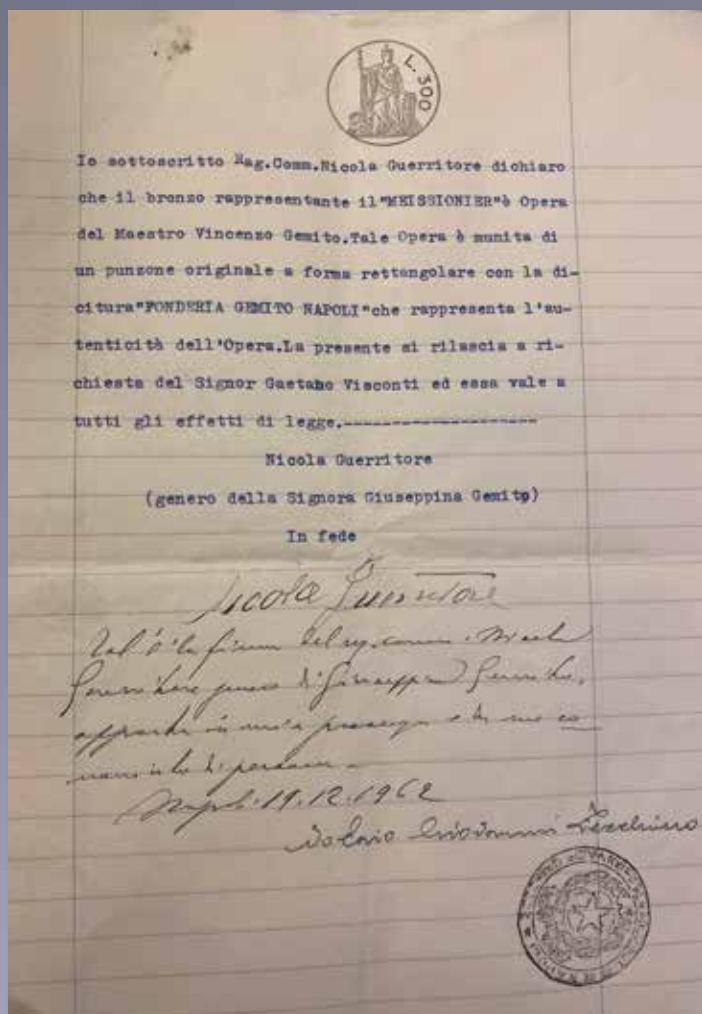 L. 300
Io sottoscritto Rag.Comm.Nicola Guerritore dichiaro
che il bronzo rappresentante il"MEISSIONIER"è Opera
del Maestro Vincenzo Gemito.Tale Opera è munita di
un punzone originale a forma rettangolare con la di-
citura"FONDERIA GEMITO NAPOLI"che rappresenta l'au-
tenticità dell'Opera.La presente si rilascia a ri-
chiesta del Signor Gaetano Visconti ed essa vale a
tutti gli effetti di legge.--------------------
Nicola Guerritore
(genero della Signora Giuseppina Gemito)
In fede
Nicola Guerritore
Tal'è la firma del rag. comm. Nicola
Guerritore genero di Giuseppina Gemito,
apposta in mia presenza e da me co
nosciuto di persona.
Napoli 19.12.1962
Notaio Giovanni